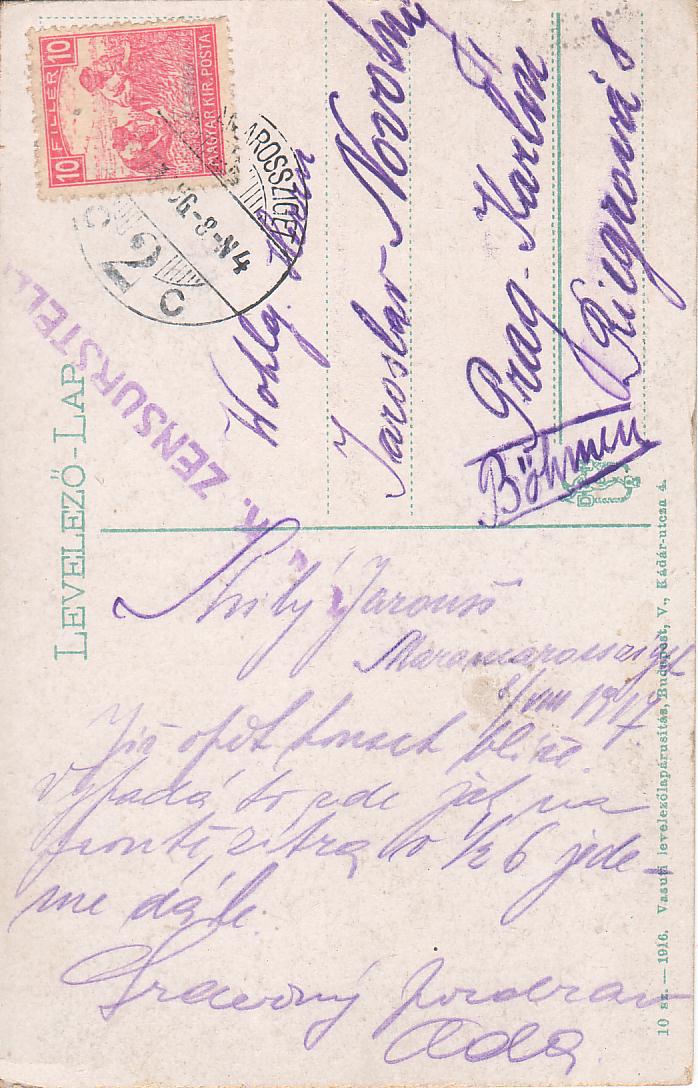 10 FILLÉR 10
10
MAGYAR KIR. POSTA
MAROSSZIGET
8-N4
2 C
K. ZENSURSTELL
LEVELEZŐ-LAP
Wohlg. Herrn
Jaroslav Novotný
Prag-Karlín
Riegrová 8
Böhmen
Milý Jarouši
Maramarossziget
8/VIII 1917
Jsi opět kousek blíže.
Vypadá to zde jak na
frontě, zítra v ½ 6 jede-
me dále.
Srdečný pozdrav
Ada.
10 sz. — 1916. Vasuti levelezőlapárusítás, Budapest, V., Kádár-utcza 4.